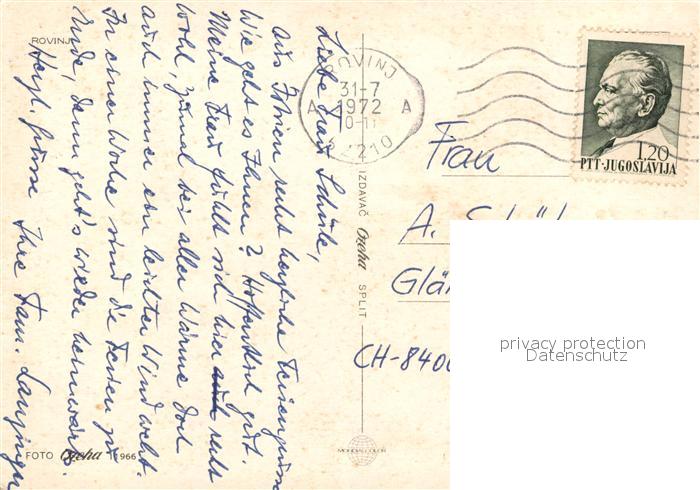 ROVINJ
Liebe Frau Schüle,
aus Istrien recht herzliche Feriengrüsse
Wie geht es Ihnen? Hoffentlich gut.
Meine Frau fühlt sich hier recht
wohl, zumal bei aller Wärme doch
auch immer ein leichter Wind weht.
In einer Woche sind die Ferien zu
Ende, dann geht's wieder heimwärts.
Herzl. Grüsse Ihre Fam.
FOTO Ozeha 1966
IZDAVAČ Ozeha SPLIT
MONDIALCOLOR
ROVINJ
31-7
A 1972 A
10-11
52210
1.20
PTT·JUGOSLAVIJA
Frau
A.
CH-8400
privacy protection
Datenschutz